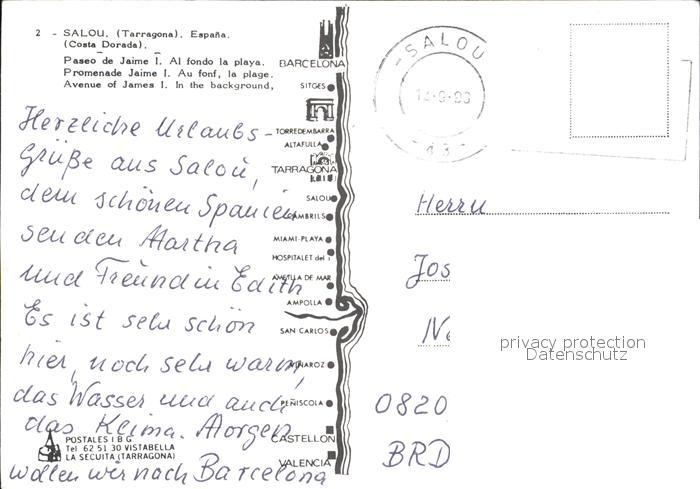 2 - SALOU. (Tarragona). España.
(Costa Dorada).
Paseo de Jaime I. Al fondo la playa.
Promenade Jaime I. Au fonf, la plage.
Avenue of James I. In the background,
Herzliche Urlaubs-
Grüße aus Salou,
dem schönen Spanien
senden Martha
und Freundin Edith
Es ist sehr schön
hier, noch sehr warm,
das Wasser und auch
das Klima. Morgen
wollen wir nach Barcelona
POSTALES I B G
Tel 62 51 30 VISTABELLA
LA SECUITA (TARRAGONA)
BARCELONA
SITGES
TORREDEMBARRA
ALTAFULLA
TARRAGONA
SALOU
CAMBRILS
MIAMI-PLAYA
HOSPITALET del I
AMETLLA DE MAR
AMPOLLA
SAN CARLOS
VINAROZ
PEÑISCOLA
CASTELLON
VALENCIA
-SALOU
Herrn
Jos
Ne
privacy protection
Datenschutz
0820
BRD